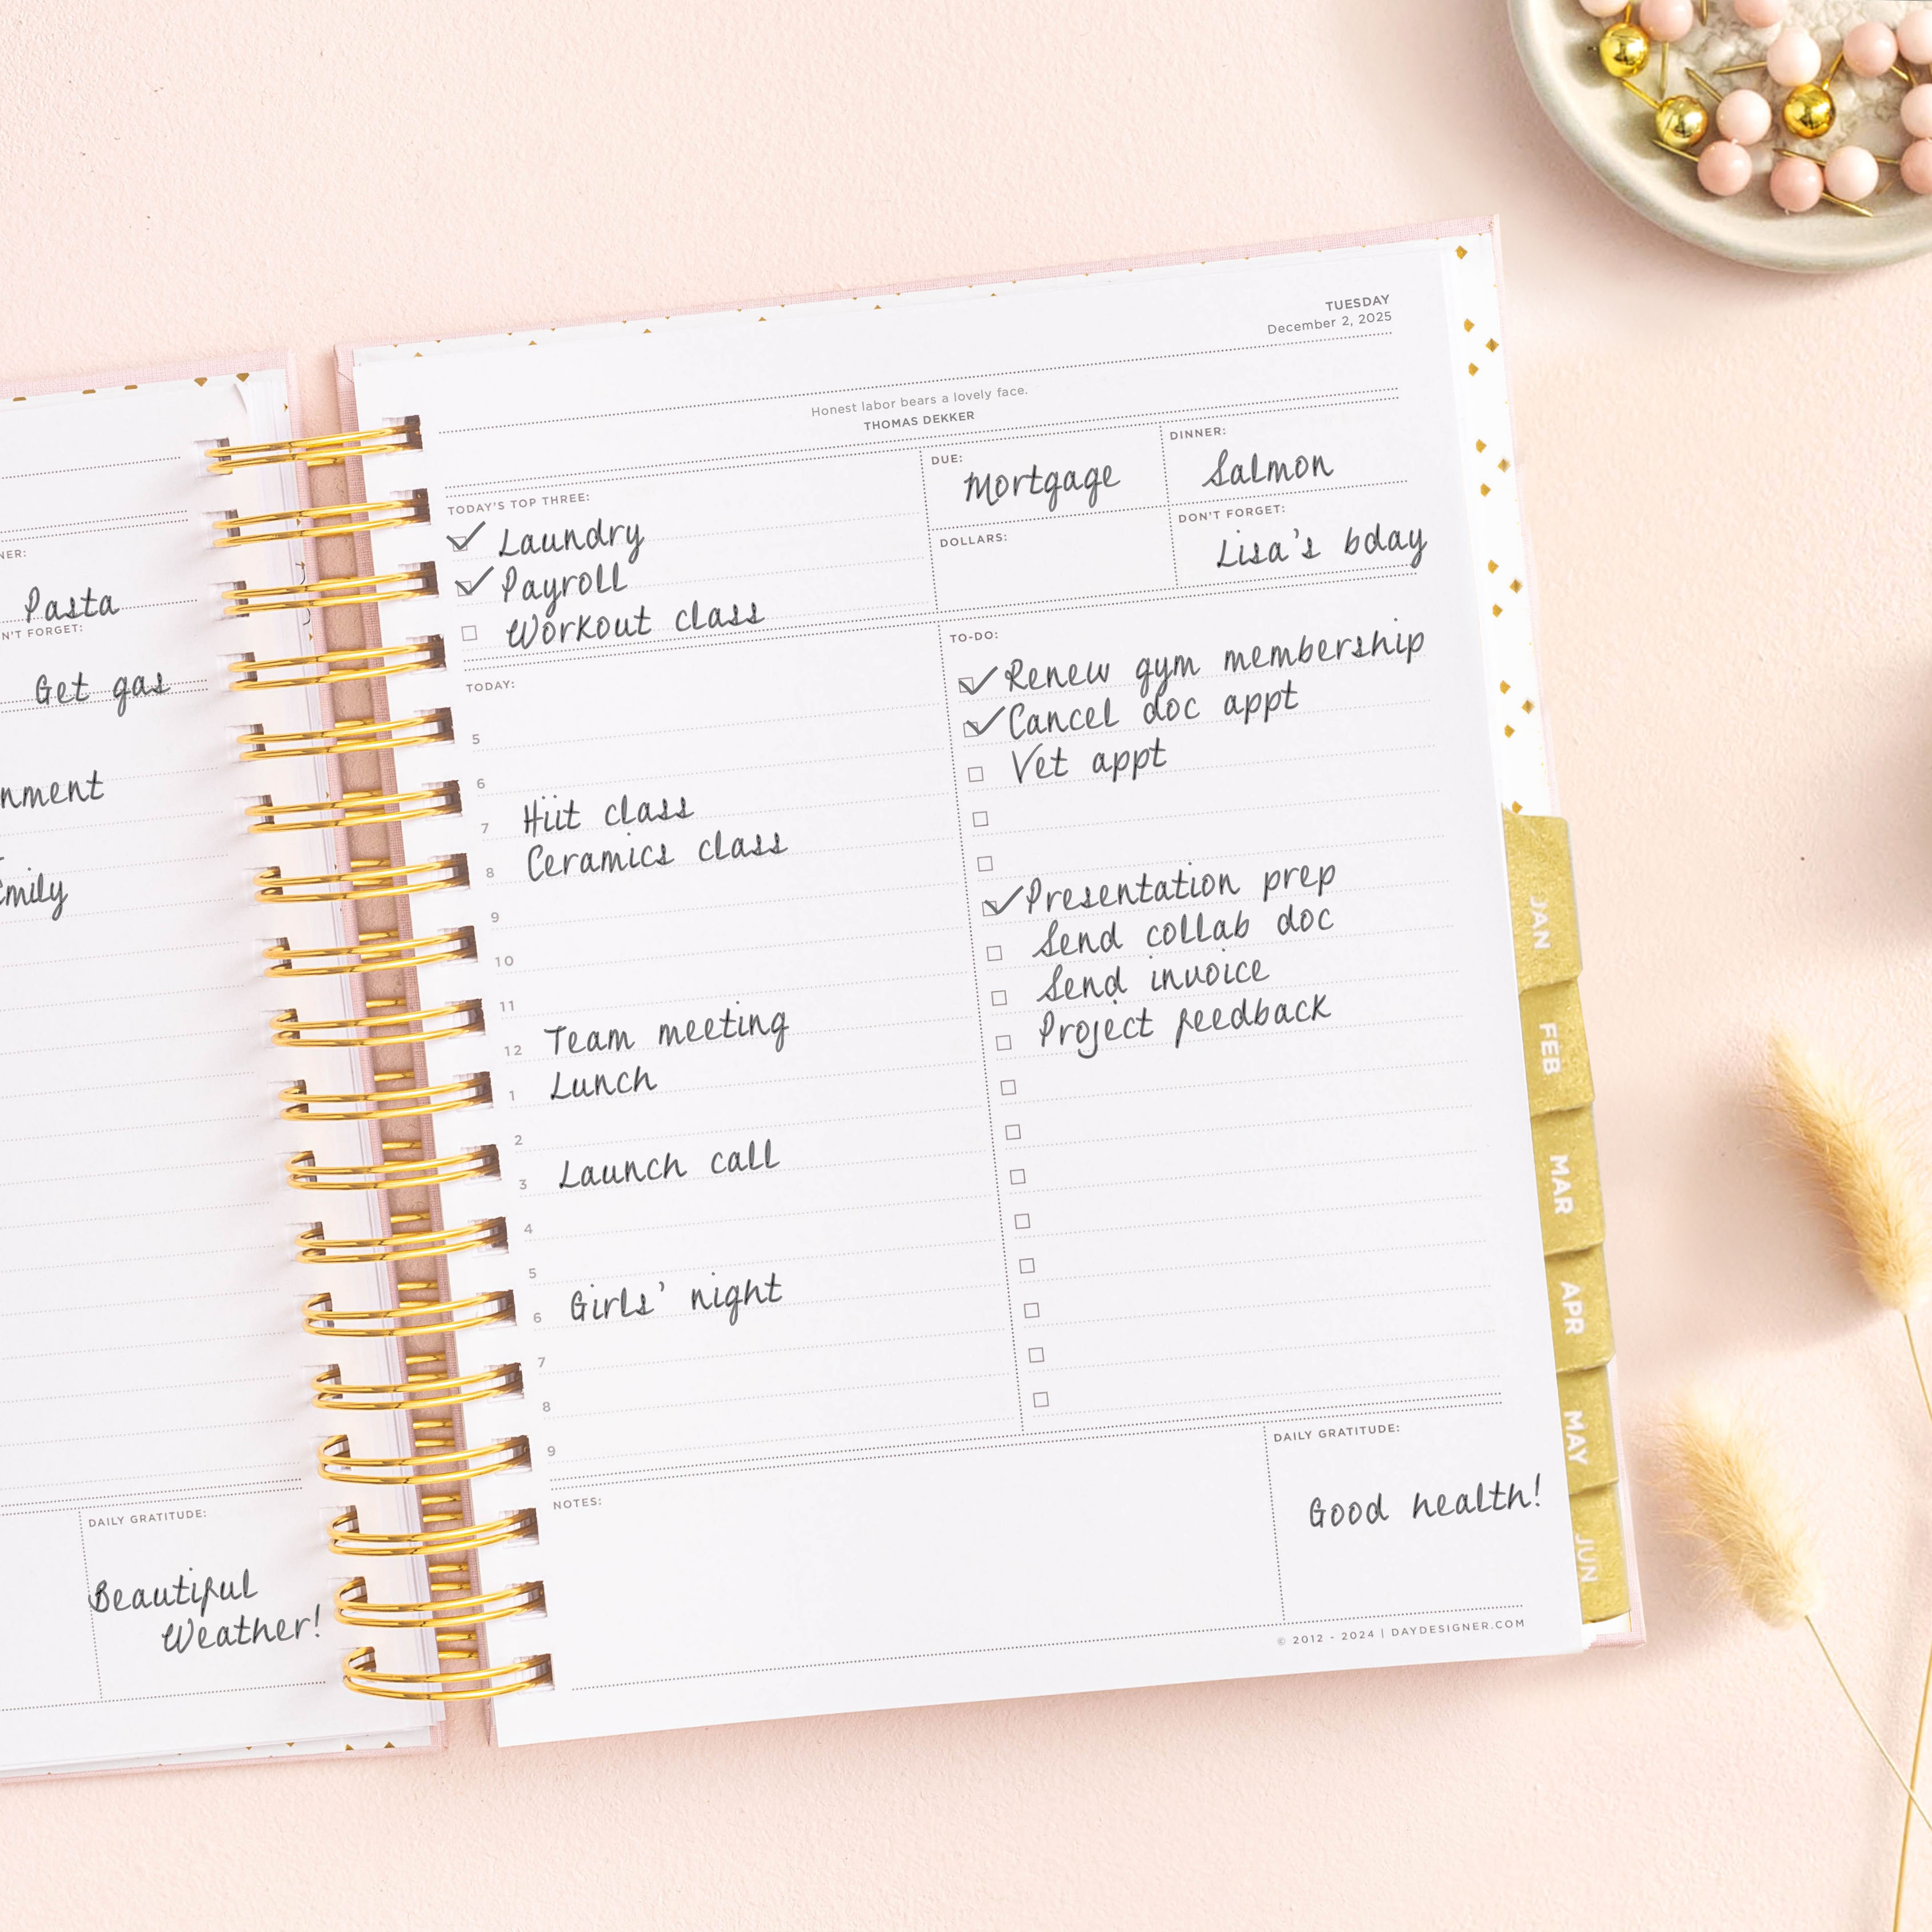 NER:
Pasta
N'T FORGET:
Get gas
nment
Emily
DAILY GRATITUDE:
Beautiful
Weather!
TUESDAY
December 2, 2025
Honest labor bears a lovely face.
THOMAS DEKKER
TODAY'S TOP THREE:
Laundry
Payroll
Workout class
DUE:
Mortgage
DINNER:
Salmon
DOLLARS:
DON'T FORGET:
Lisa's bday
TODAY:
5
6
7 Hiit class
8 Ceramics class
9
10
11
12 Team meeting
1 Lunch
2
3 Launch call
4
5
6 Girls' night
7
8
9
TO-DO:
Renew gym membership
Cancel doc appt
Vet appt
Presentation prep
Send collab doc
Send invoice
Project feedback
NOTES:
DAILY GRATITUDE:
Good health!
© 2012 - 2024 | DAYDESIGNER.COM
JAN
FEB
MAR
APR
MAY
JUN